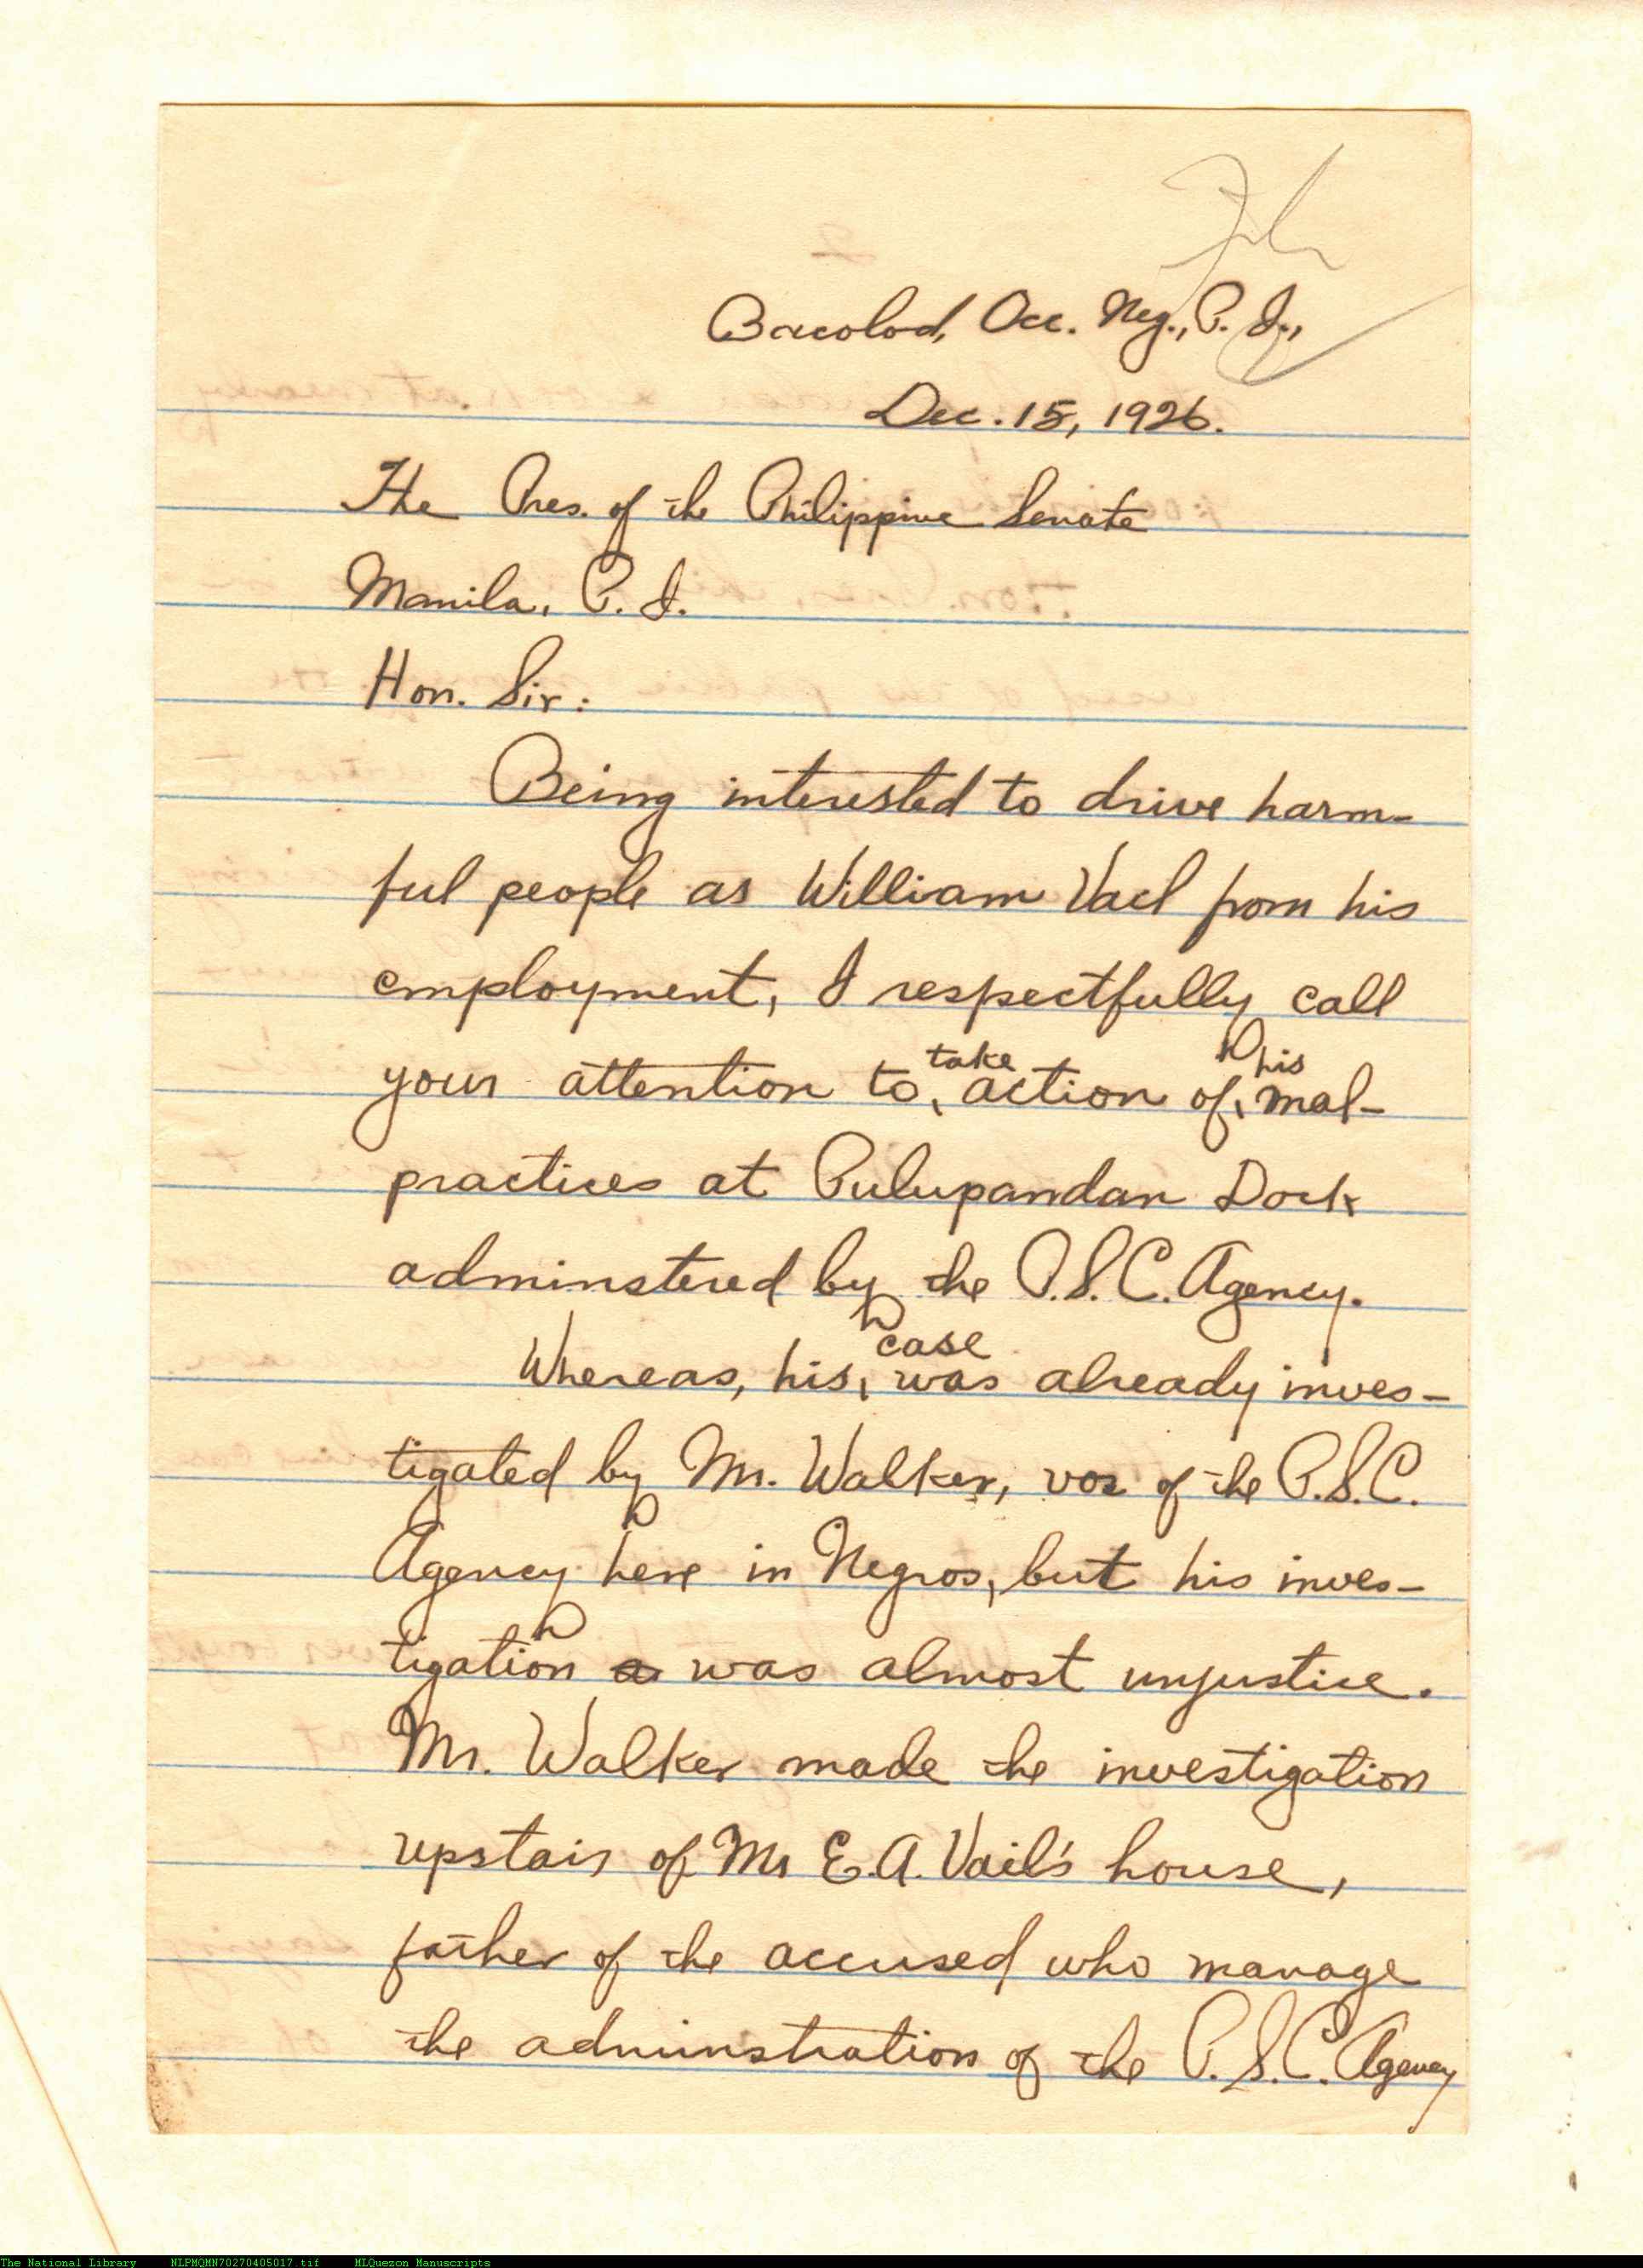 Bacolod, Occ. Neg., P. I.,
Dec. 15, 1926.
The Pres. of the Philippine Senate
Manila, P. I.
Hon. Sir:
Being interested to drive harm-
ful people as William Vail from his
employment, I respectfully call
your attention to take action of his mal-
practices at Pulupandan Dock
adminstered by the P.S.C. Agency.
Whereas, his case was already inves-
tigated by Mr. Walker, of the P.S.C.
Agency here in Negros, but his inves-
tigation was almost unjustice.
Mr. Walker made the investigation
upstair of Mr E.A. Vail's house,
father of the accused who manage
the adminstration of the P.S.C. Agency
The National Library NLPMQMN70270405017.tif MLQuezon Manuscripts